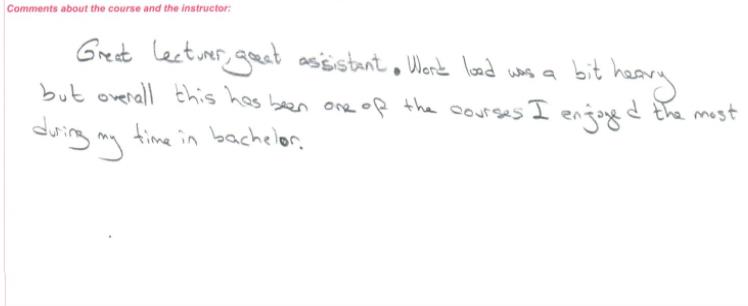 Comments about the course and the instructor:
Great lecturer, great assistant. Work load was a bit heavy
but overall this has been one of the courses I enjoyed the most
during my time in bachelor.